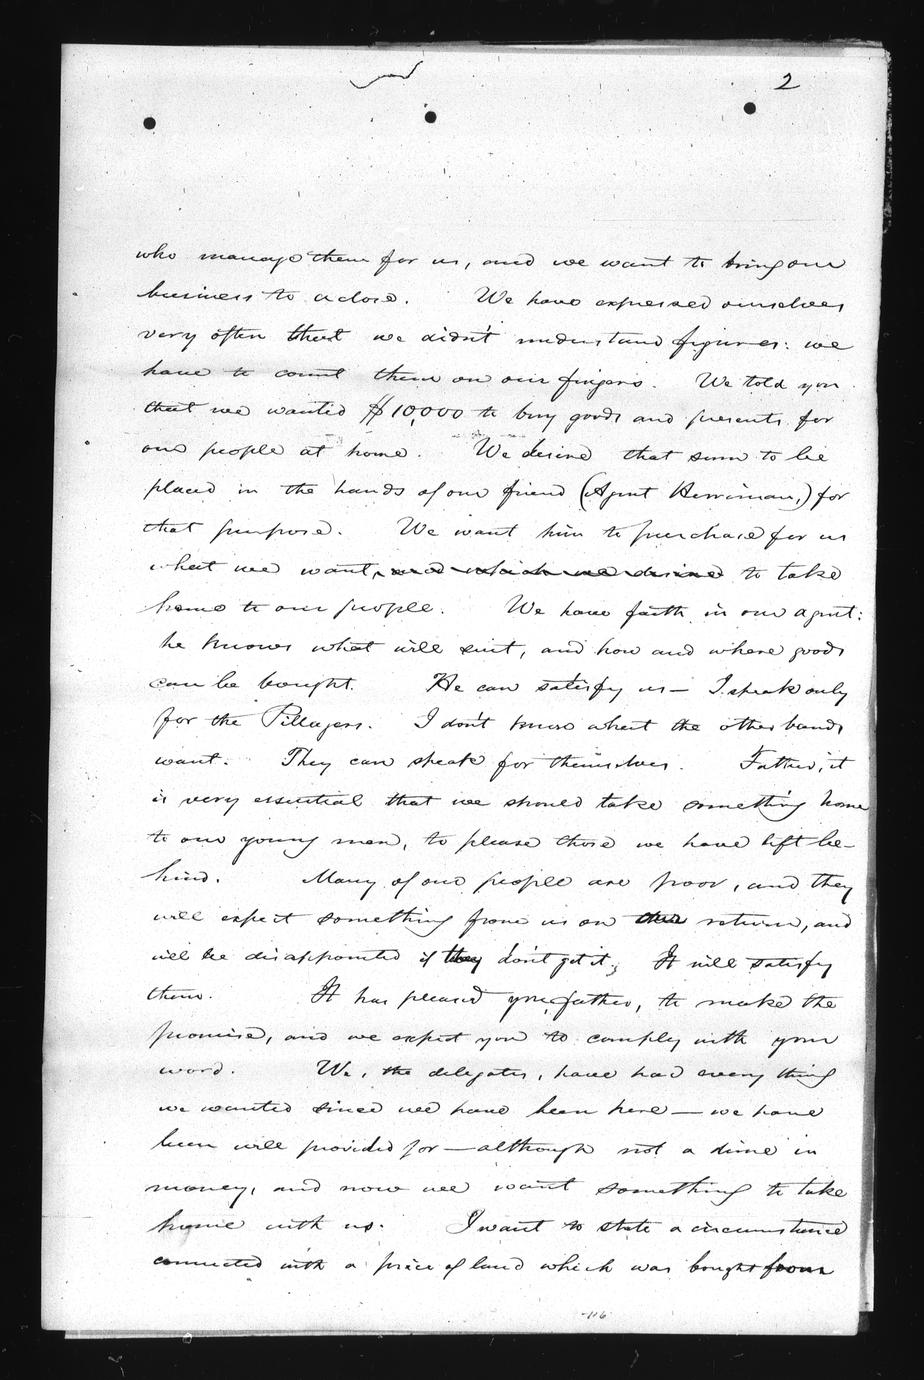 2
who manage them for us, and we want to bring our
business to a close. We have expressed ourselves
very often that we didn't understand figures: we
have to count them on our fingers. We told you
that we wanted $10,000 to buy goods and presents for
our people at home. We desire that sum to be
placed in the hands of our friend (Agent Herriman,) for
that purpose. We want him to purchase for us
what we want, and which we desire to take
home to our people. We have faith in our agent:
he knows what will suit, and how and where goods
can be bought. He can satisfy us — I speak only
for the Pillagers. I don't know what the other bands
want. They can speak for themselves. Father, it
is very essential that we should take something home
to our young men, to please those we have left be-
hind. Many of our people are poor, and they
will expect something from us on our return, and
will be disappointed if they don't get it; It will satisfy
them. It has pleased you, father, to make the
promise, and we expect you to comply with your
word. We, the delegates, have had every thing
we wanted since we have been here — we have
been well provided for — although not a dime in
money, and now we want something to take
home with us. I want to state a circumstance
connected with a piece of land which was bought from
116